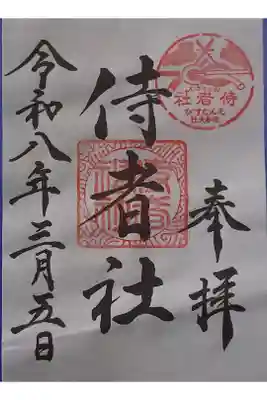 奉拝
侍者社
侍者社
令和八年三月五日